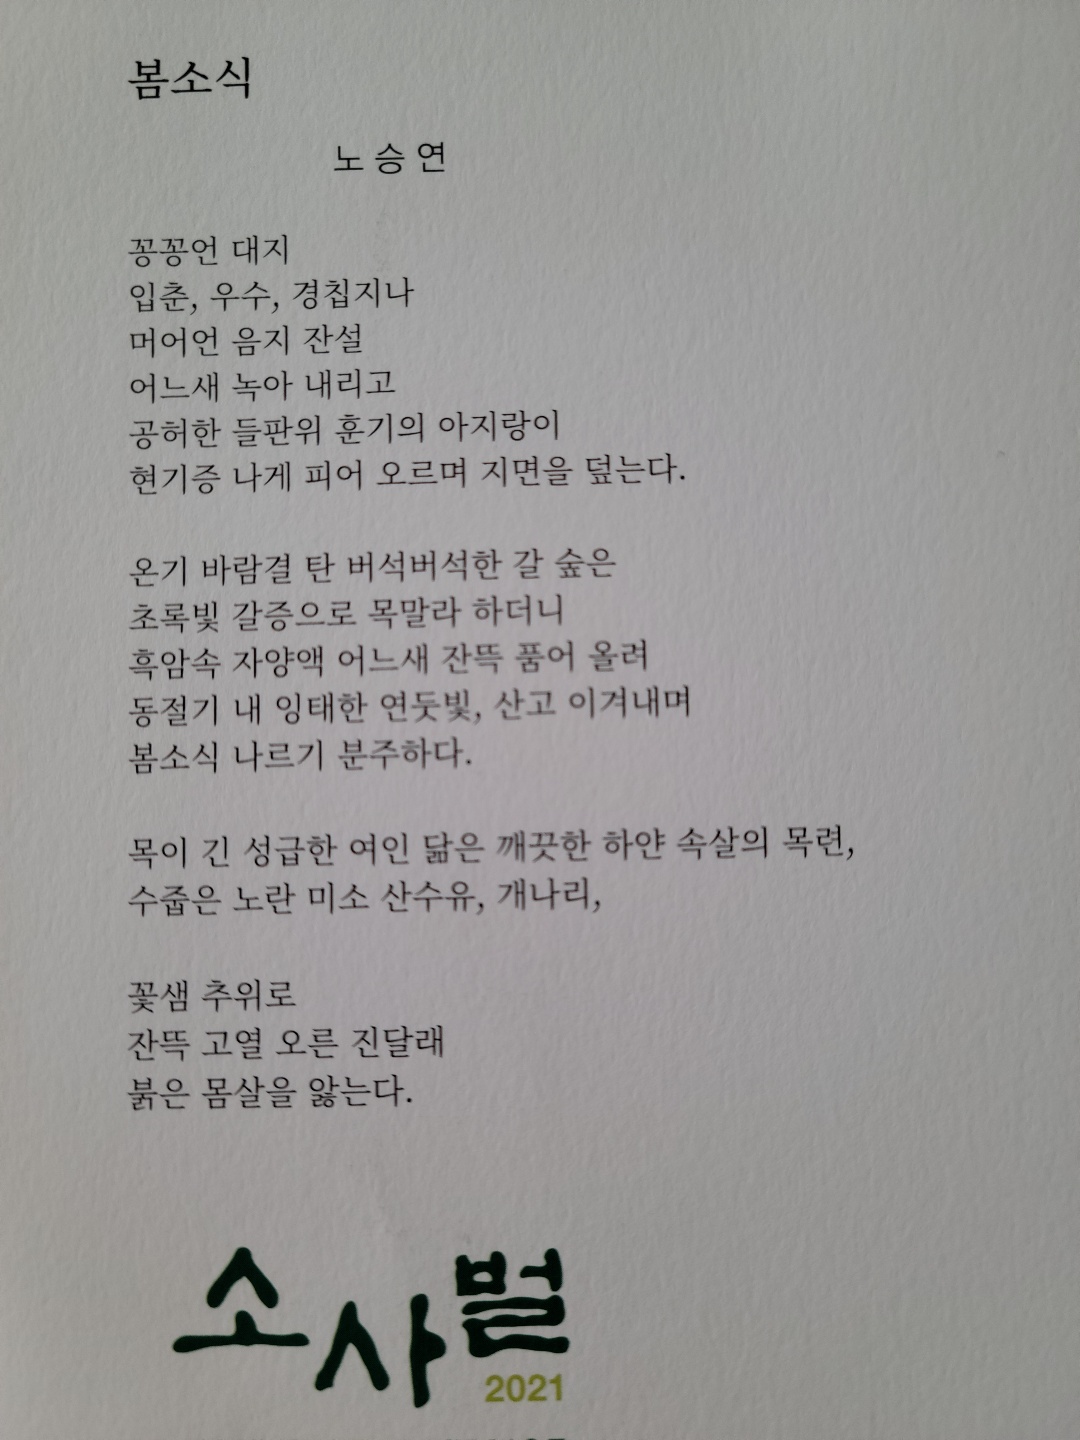 봄소식
노 승 연
꽁꽁언 대지
입춘, 우수, 경칩지나
머어언 음지 잔설
어느새 녹아 내리고
공허한 들판위 훈기의 아지랑이
현기증 나게 피어 오르며 지면을 덮는다.
온기 바람결 탄 버석버석한 갈 숲은
초록빛 갈증으로 목말라 하더니
흑암속 자양액 어느새 잔뜩 품어 올려
동절기 내 잉태한 연둣빛, 산고 이겨내며
봄소식 나르기 분주하다.
목이 긴 성급한 여인 닮은 깨끗한 하얀 속살의 목련,
수줍은 노란 미소 산수유, 개나리,
꽃샘 추위로
잔뜩 고열 오른 진달래
붉은 몸살을 앓는다.
소사벌
2021